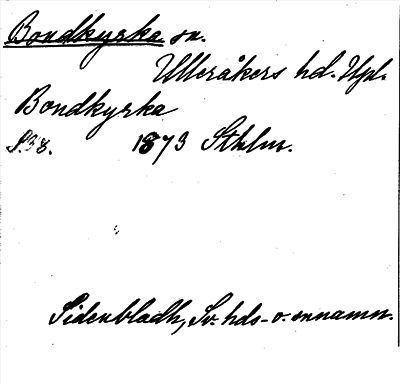 Bondkyrka sn.
Ulleråkers hd. Upl.
Bondkyrka
S. 38. 1873 Sthlm.
Sidenbladh, Sv. hds- o. snnamn.